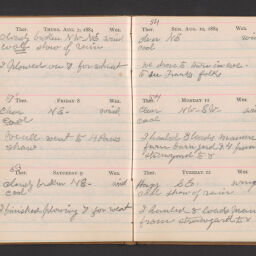 Ther. Thurs, Aug. 7, 1884 Wea.
cloudy broken N.W. N.E. wind
cool show of rain
I Plowed on I for wheat
Ther. Friday 8 Wea.
Clear N.E. wind
cool
We all went to 4 Paws
show
Ther. Saturday 9 Wea.
cloudy broken N.E. wind
cool
I finished Plowing I for wheat
Ther. Sun. Aug. 10, 1884 Wea.
clear N.E.
cool
we drove to
to see Franks folks
Ther. Monday 11 Wea.
Clear N.W. S.W.
cool
I hauled 8 loads manure
from barn yard & 4 from
strawyard to 8
Ther. Tuesday 12 Wea.
Hazy S.E. wind
cool show of rain
I hauled 8 loads manu
from strawyard to 8